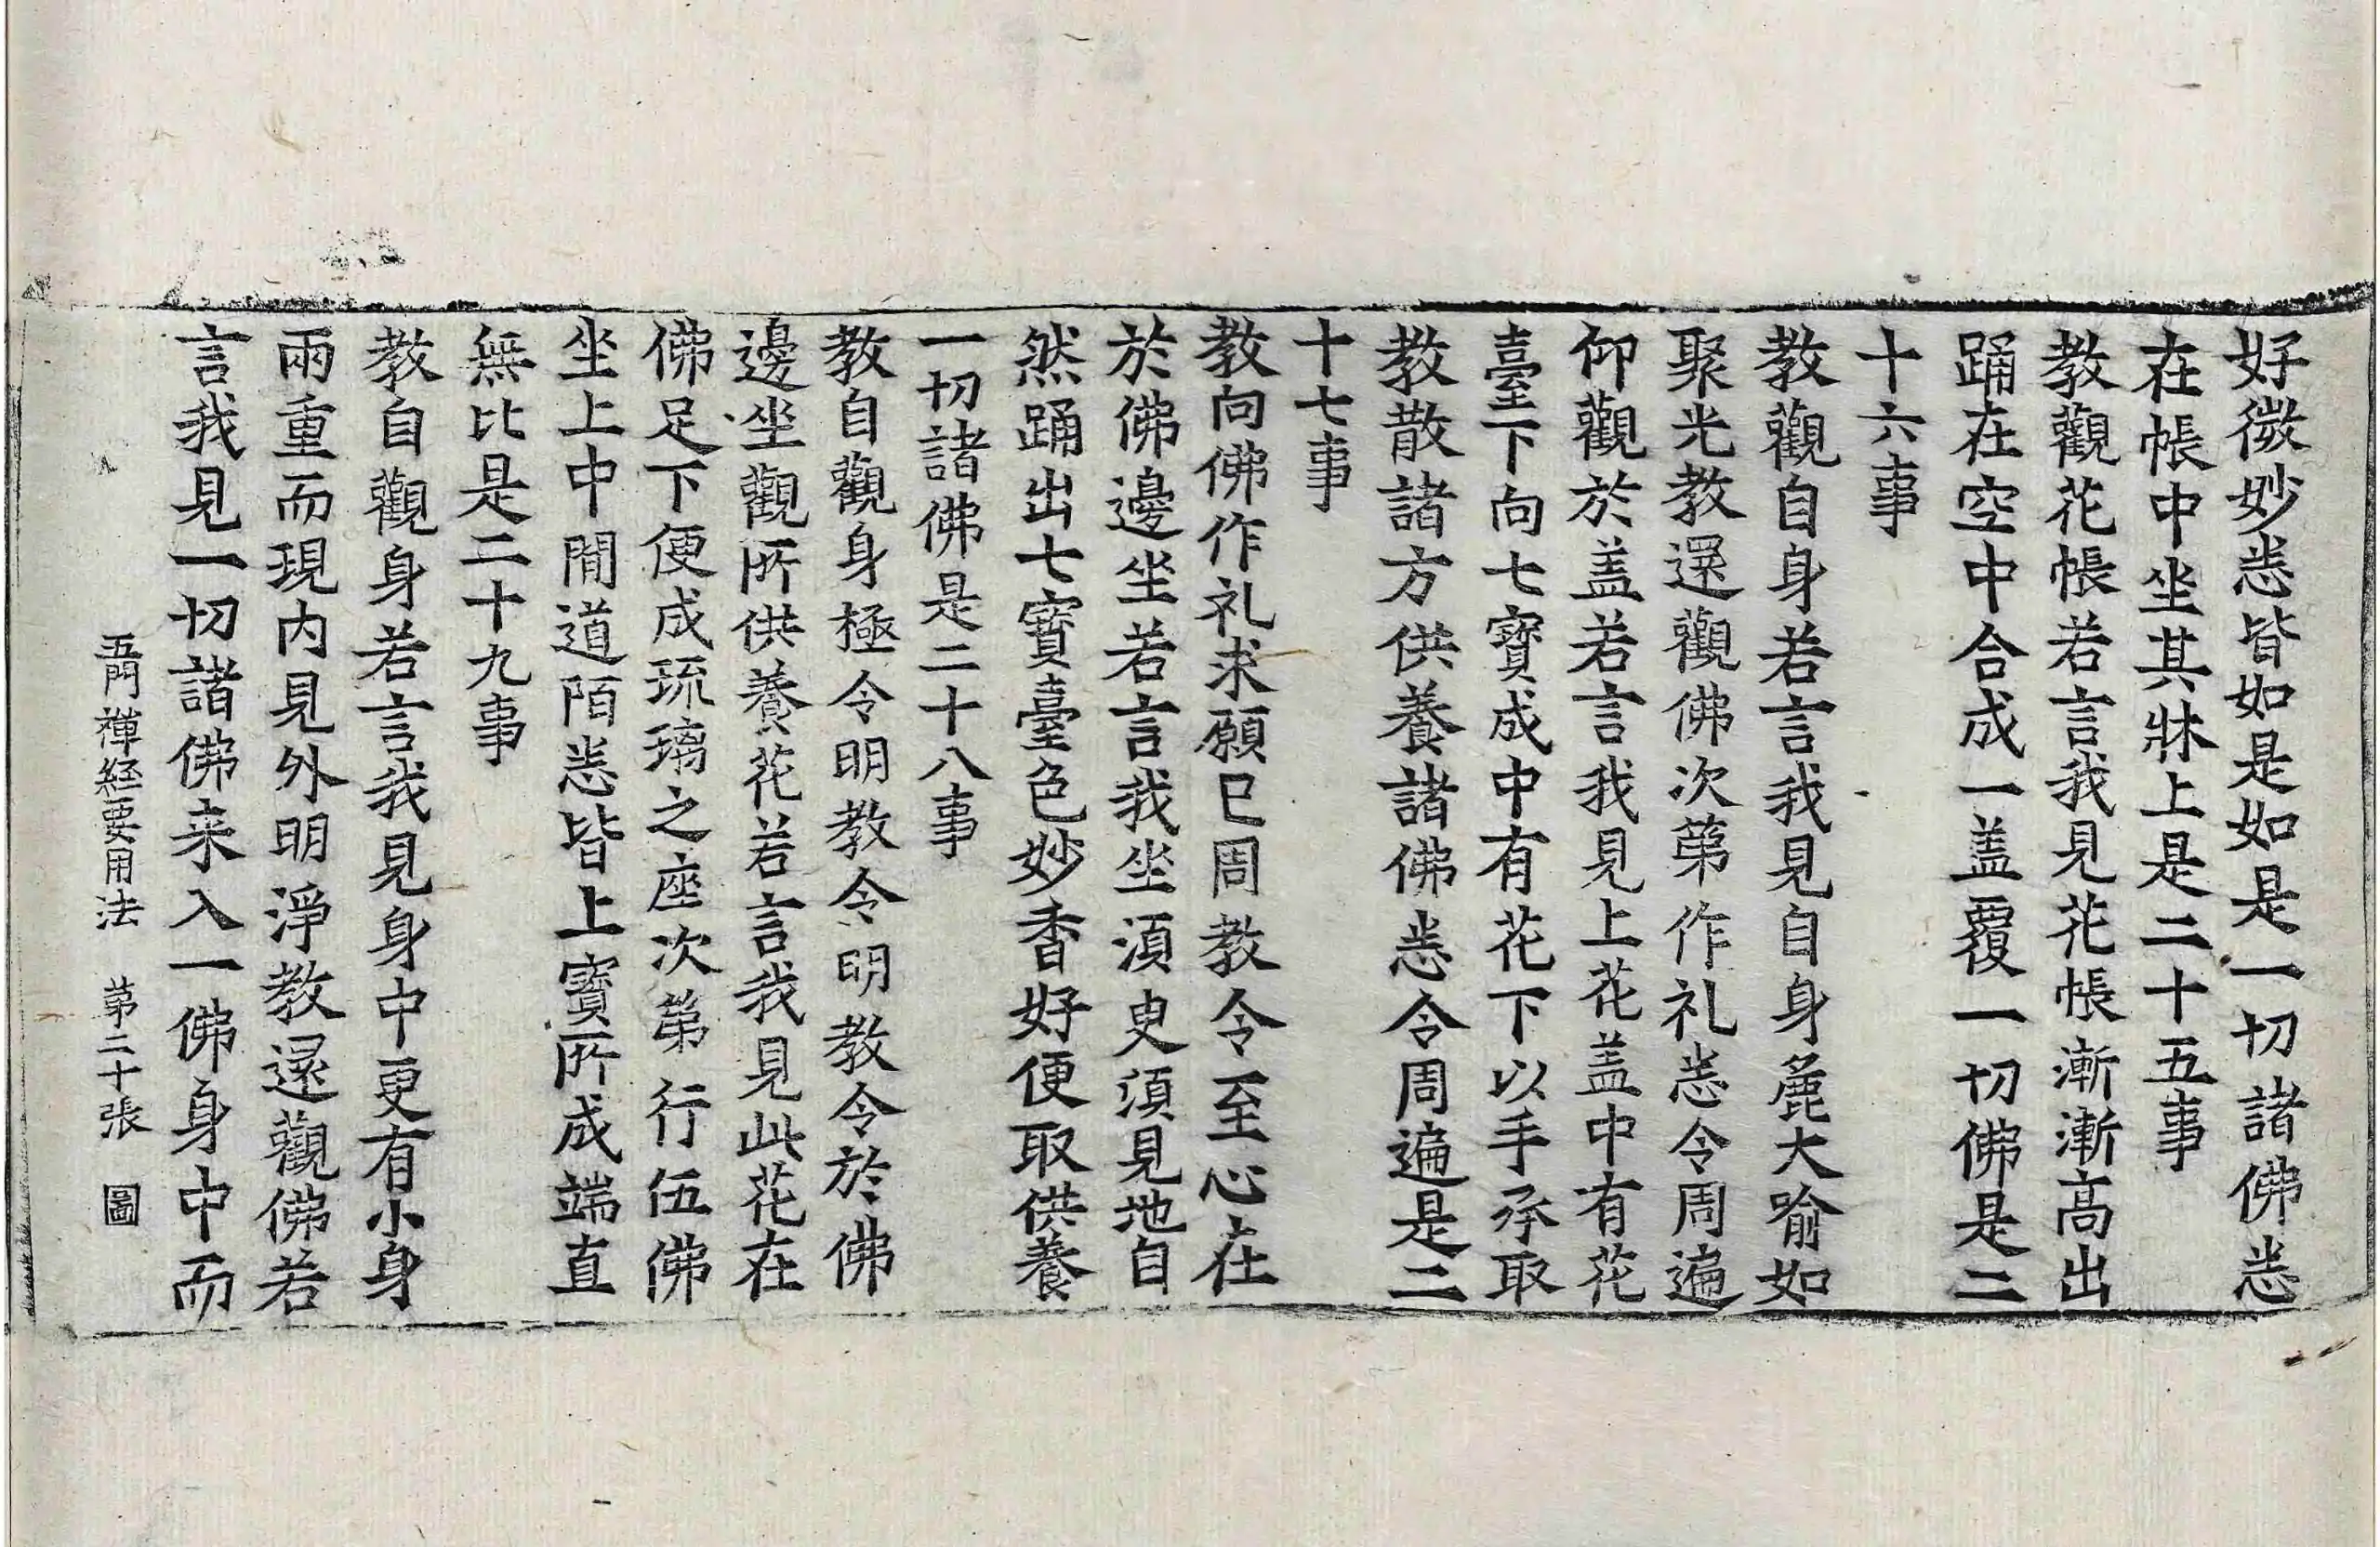 好微妙悉皆如是如是一切諸佛悉
在帳中坐其牀上是二十五事
教觀花帳若言我見花帳漸漸高出
踊在空中合成一盖覆一切佛是二
十六事
教觀自身若言我見自身麁大喻如
聚光教還觀佛次第作礼悉令周遍
仰觀於盖若言我見上花盖中有花
臺下向七寶成中有花下以手承取
教散諸方供養諸佛悉令周遍是二
十七事
教向佛作礼求願已周教令至心在
於佛邊坐若言我坐須臾須見地自
然踊出七寶臺色妙香好便取供養
一切諸佛是二十八事
教自觀身極令明教令明教令於佛
邊坐觀所供養花若言我見此花在
佛足下便成琉璃之座次第行伍佛
坐上中間道陌悉皆上寶所成端直
無比是二十九事
教自觀身若言我見身中更有小身
兩重而現内見外明淨教還觀佛若
言我見一切諸佛来入一佛身中而
五門禪経要用法 第二十張 圖